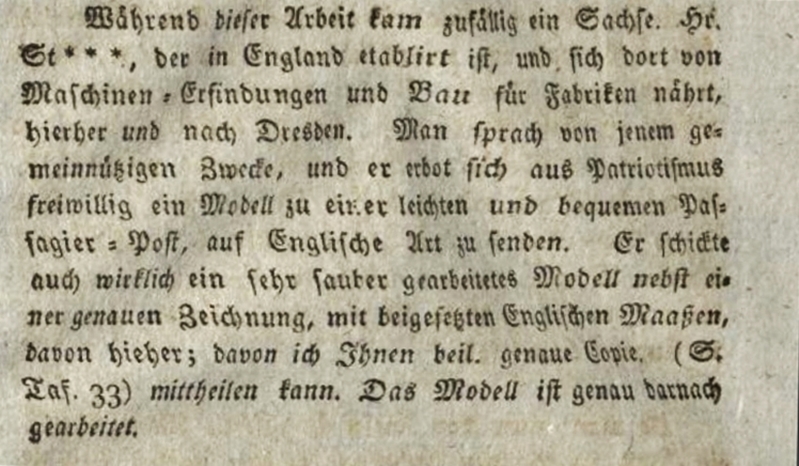 Während dieser Arbeit kam zufällig ein Sachse. Hr.
St***, der in England etablirt ist, und sich dort von
Maschinen-Erfindungen und Bau für Fabriken nährt,
hierher und nach Dresden. Man sprach von jenem ge-
meinnützigen Zwecke, und er erbot sich aus Patriotismus
freiwillig ein Modell zu einer leichten und bequemen Pas-
sagier-Post, auf Englische Art zu senden. Er schickte
auch wirklich ein sehr sauber gearbeitetes Modell nebst ei-
ner genauen Zeichnung, mit beigesetzten Englischen Maaßen,
davon hieher; davon ich Ihnen beil. genaue Copie. (S.
Taf. 33) mittheilen kann. Das Modell ist genau darnach
gearbeitet.